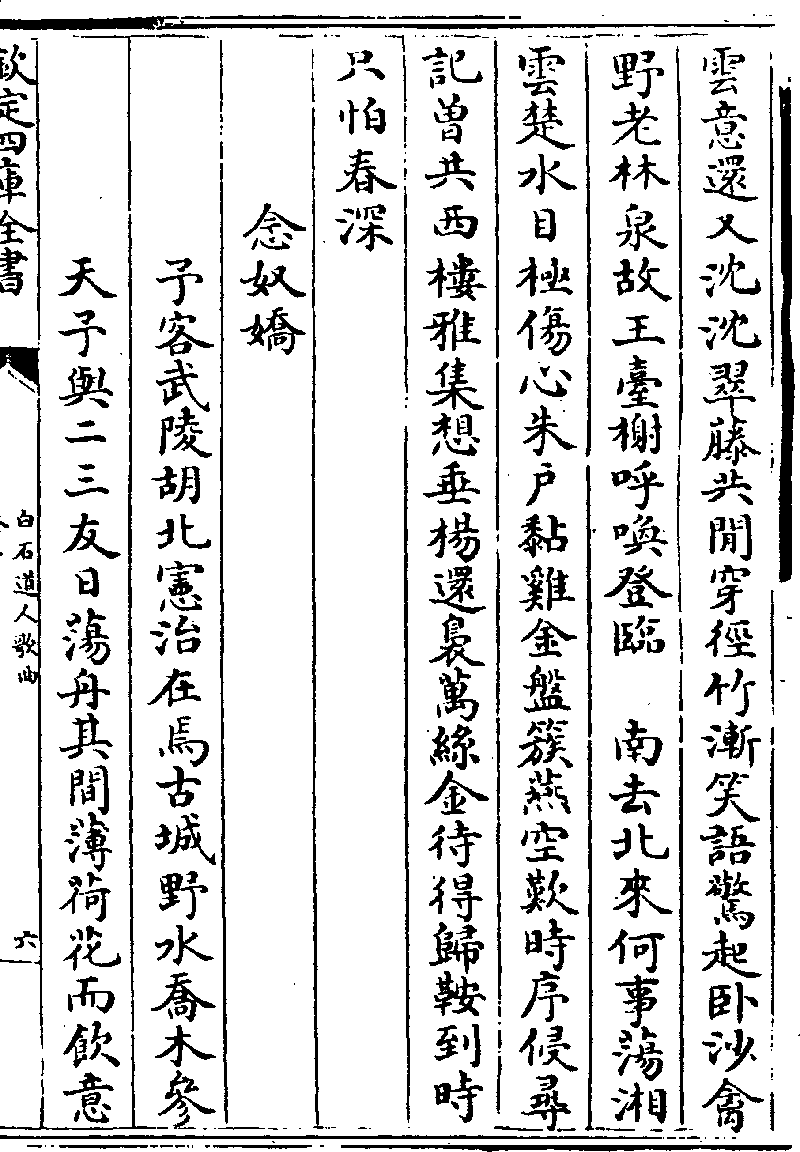 雲意還又沈沈翠藤共閒穿徑竹漸笑語驚起卧沙禽
野老林泉故王臺榭呼喚登臨　南去北來何事蕩湘
雲楚水目極傷心朱戶黏雞金盤簇燕空歎時序侵尋
記曾共西樓雅集想垂楊還裊萬絲金待得歸鞍到時
只怕春深
念奴嬌
予客武陵胡北憲治在焉古城野水喬木參
天予與二三友日蕩舟其間薄荷花而飲意
欽定四庫全書
白石道人歌曲
六